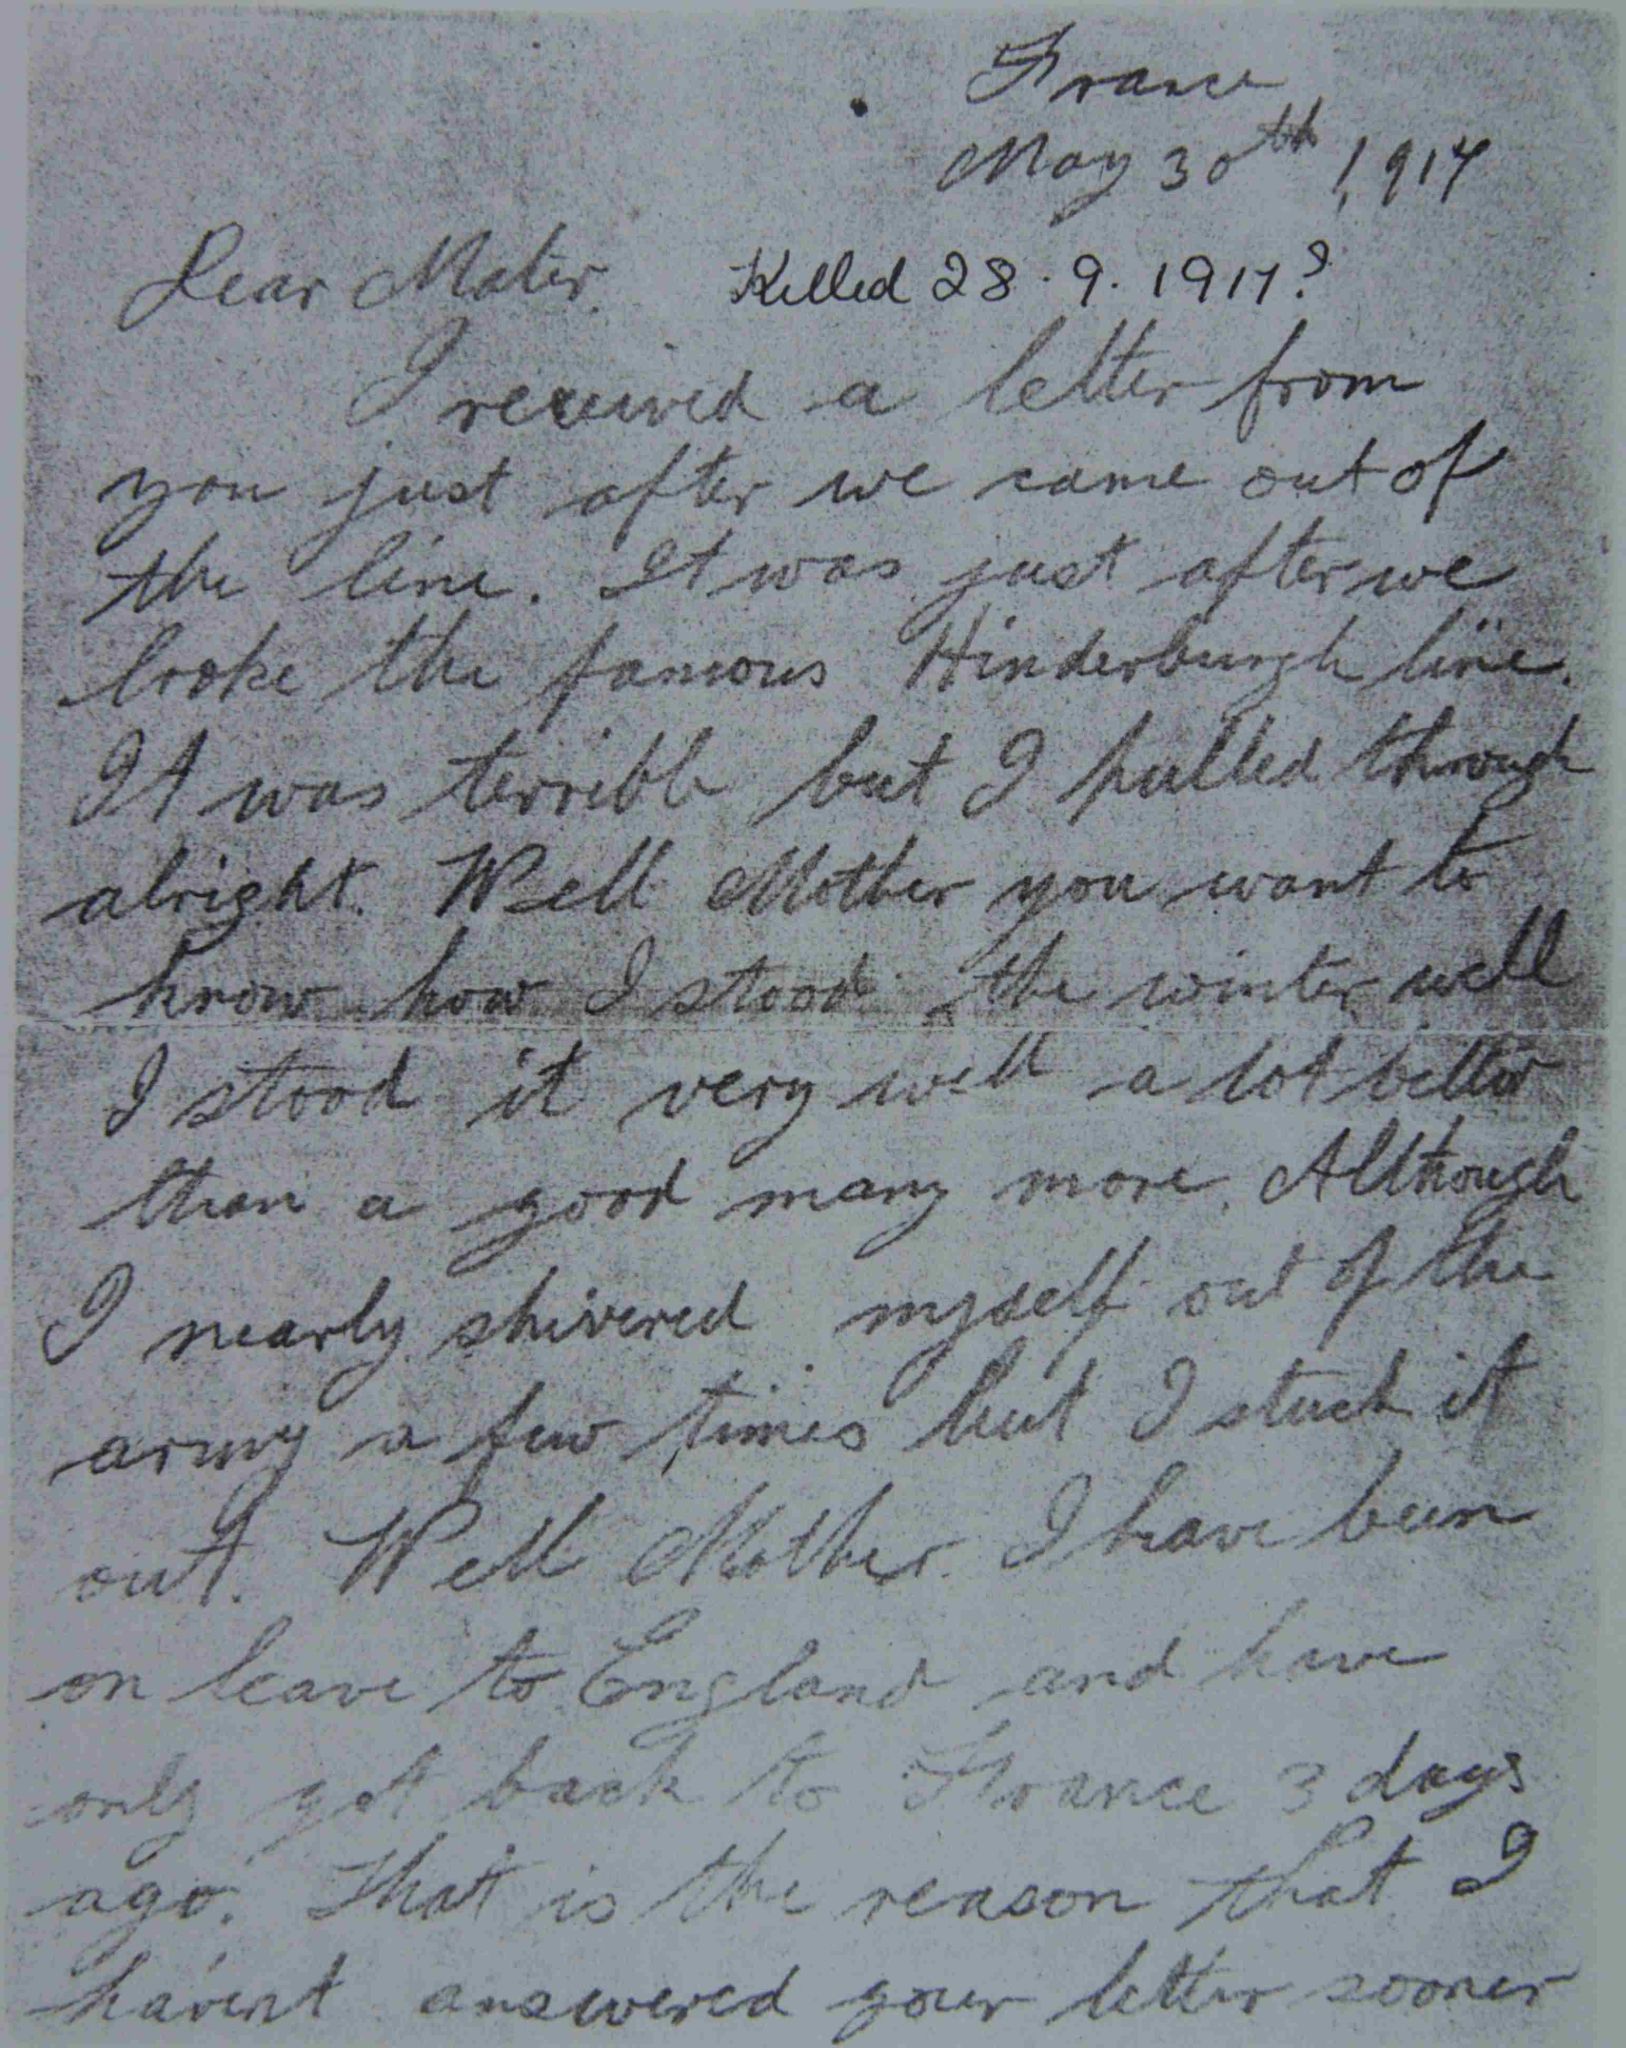 France
May 30th, 1917
Dear Mater.
Killed 28.9.1917?
I received a letter from
you just after we came out of
the line. It was just after we
broke the famous Hinderburgh line.
It was terrible but I pulled through
alright. Well Mother you want to
know how I stood the winter well
I stood it very well a lot better
than a good many more. Allthough
I nearly shivered myself out of the
army a few times but I stuck it
out. Well Mother I have been
on leave to England and have
only got back to France 3 days
ago. That is the reason that I
havent answered your letter sooner